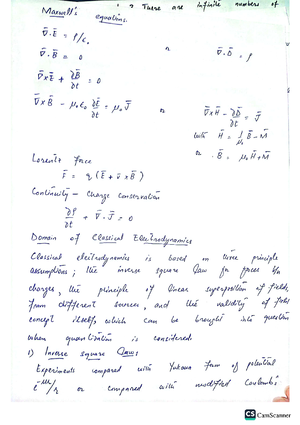 There are infinite numbers of
Maxwell's equations.
∇̄·Ē = ρ/ε₀
∇̄·B̄ = 0 or ∇̄·D̄ = ρ
∇̄×Ē + ∂B̄/∂t = 0
∇̄×B̄ - μ₀ε₀ ∂Ē/∂t = μ₀J̄ or ∇̄×H̄ - ∂D̄/∂t = J̄
with H̄ = 1/μ₀ B̄ - M̄
or B̄ = μ₀H̄+M̄
Lorentz Force
F̄ = q(Ē + v̄×B̄)
Continuity - Charge conservation
∂ρ/∂t + ∇̄·J̄ = 0
Domain of Classical Electrodynamics
Classical electrodynamics is based on three principle
assumptions; the inverse square law for forces b/n
charges, the principle of linear superposition of fields
from different sources, and the validity of field
concept itself, which can be brought into question
when quantization is considered.
1) Inverse square law:
Experiments compared with Yukawa form of potential
e^-μr/r or compared with modified Coulomb's
CS CamScanner